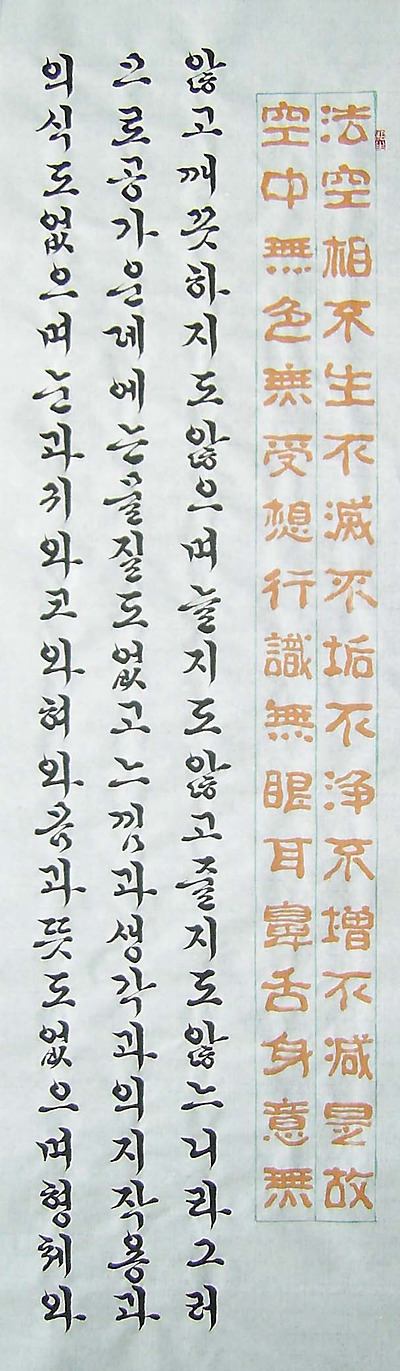 法空相不生不滅不垢不浄不增不減是故
空中無色無受想行識無眼耳鼻舌身意無
않고깨끗하지도않으며늘지도않고줄지도않느니라그러
으로공가운데에는물질도없고느낌과생각과의지작용과
의식도없으며눈과귀와코와혀와몸과뜻도없으며형체와